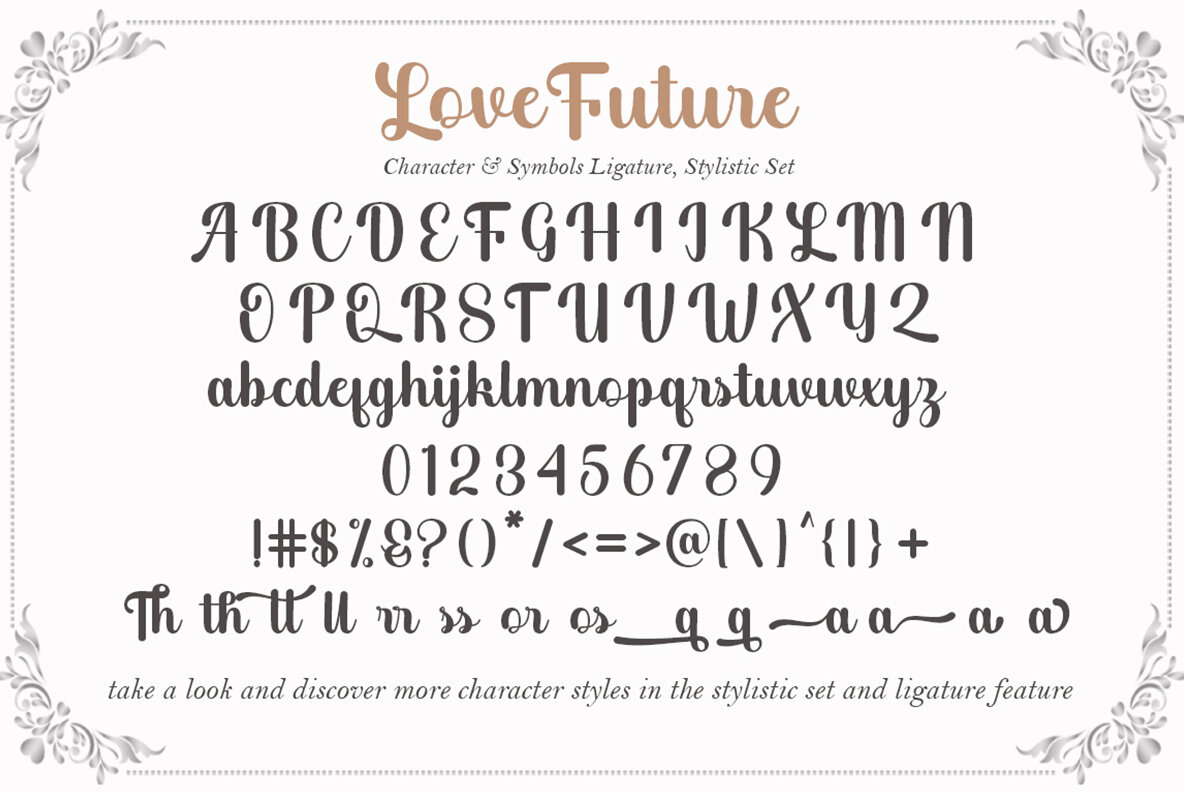 LoveFuture
Character & Symbols Ligature, Stylistic Set
A B C D E F G H I J K L M N
O P Q R S T U V W X Y Z
abcdefghijklmnopqrstuvwxyz
0 1 2 3 4 5 6 7 8 9
! # $ % & ? ( ) * / < = > @ [ \ ] ^ { | } +
Th th tt ll rr ss or os q q a a a a
take a look and discover more character styles in the stylistic set and ligature feature